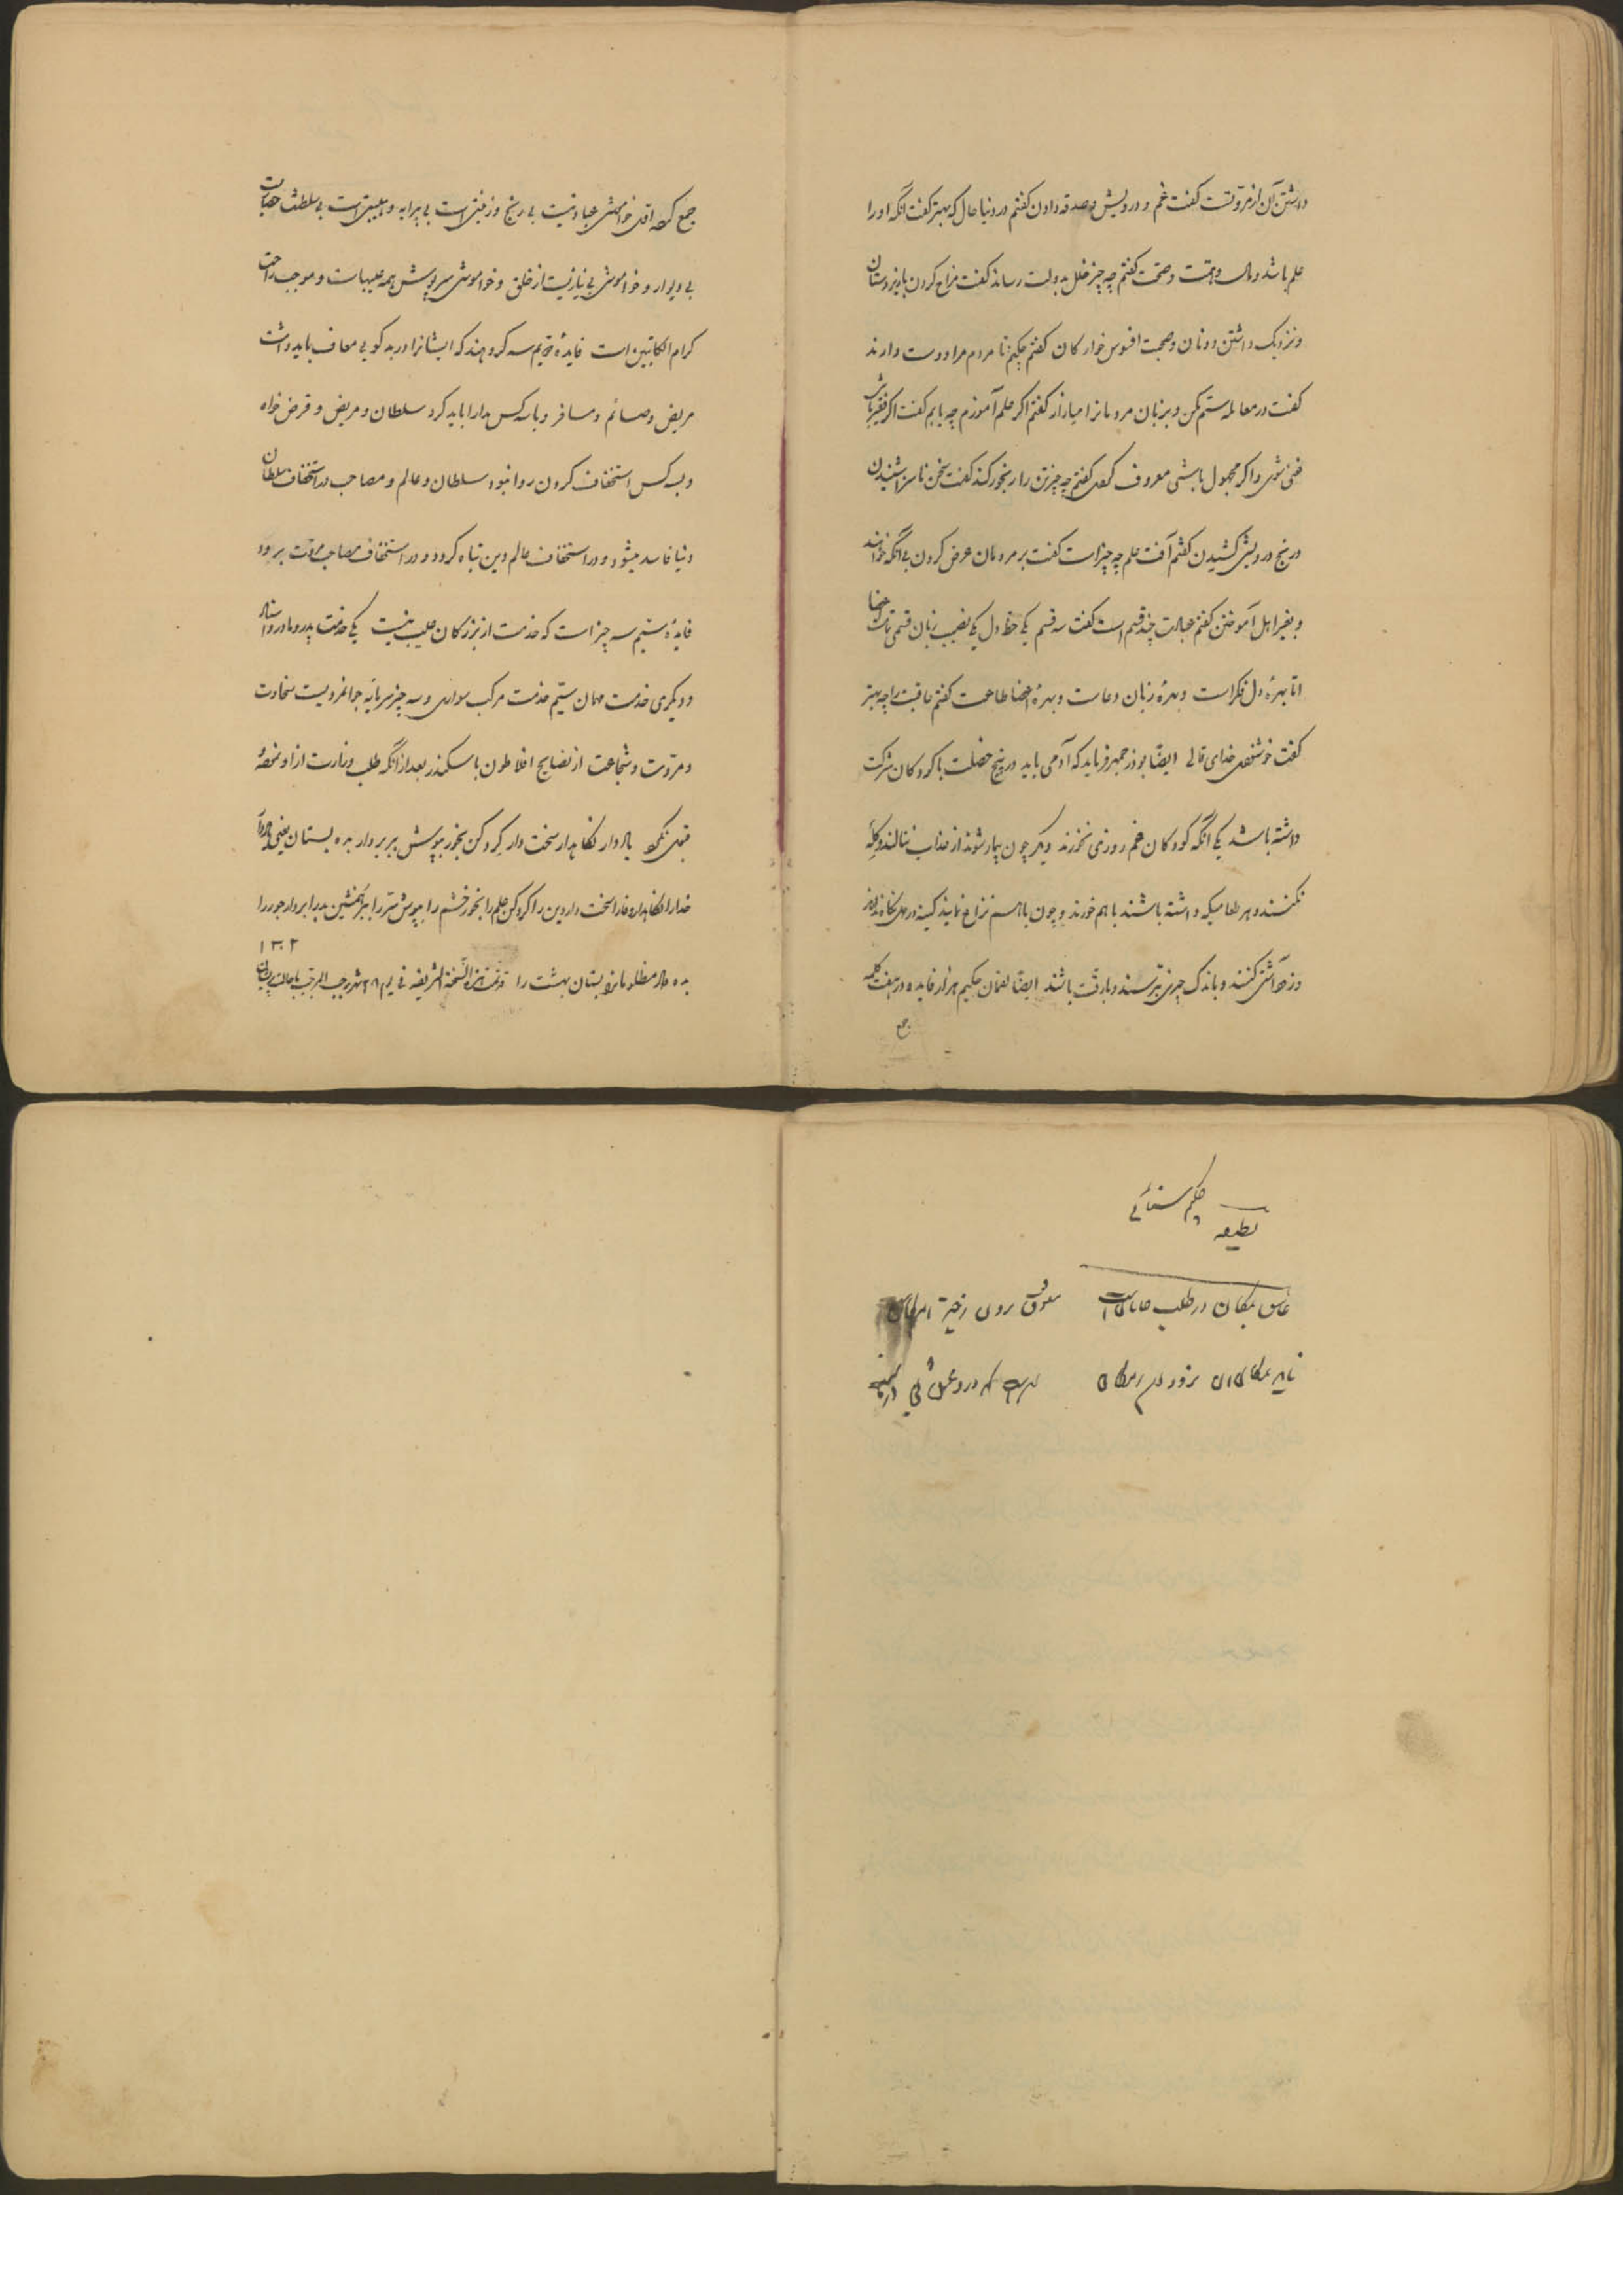 داشتن آن از مروتست گفت خشم و درویش و صدقه دادن گفتم در دنیا حال که بهتر گفت آنکه او را
علم باشد و مال و همت و صحت گفتم چه چیز خلل بدولت رساند گفت مزاح کردن با زیردستان
و نزدیک داشتن دونان و صحبت افسوس خوارکان گفتم چکنم تا مردم مرا دوست دارند
گفت در معامله ستم مکن و بزبان مردمانرا میازار گفتم اگر علم آموزم چه یابم گفت اگر فقیر باشی
غنی شوی و اگر مجهول باشی معروف کردی گفتم چه چیز تن را رنجور کند گفت سخن ناسزا شنیدن
و رنج درویشی کشیدن گفتم آفت علم چه چیز است گفت بر مردمان عرض کردن بی آنکه خواهند
و بغیر اهل آموختن گفتم عبادت چند قسم است گفت سه قسم یکی حظ دل یکی نصیب زبان قسمی تا اعضا
اما بهرۀ دل فکر است و بهرۀ زبان دعاست و بهرۀ اعضا طاعت گفتم عاقبت را چه بهتر
گفت خوشنودی خدای تعالی ایضا بوذرجمهر فرماید که آدمی باید در پنج خصلت با کودکان شرکت
داشته باشد یکی آنکه کودکان غم روزی نخورند دیگر چون بیمار شوند از خدا ننالند و گله
نکنند و هر طعامیکه داشته باشند با هم خورند و چون با هم نزاع نمایند کینه در دل نگاه ندارند
و زود آشتی کنند و باندک چیزی بترسند و با رقت باشند ایضا لقمان حکیم هزار فایده در هفت کلمه
جمع
جمع کرده اول خاموشی عبادتیست بی رنج و زینتی است بی پیرایه و هیبتی است بی سلطنت حصاریست
بی دیوار و خاموشی بی نیازیست از خلق و خواموشی سرپوش همه عیبهاست و موجب راحت
کرام الکاتبین است فایدۀ دویم سه گروهند که ایشانرا در بدکویی معاف باید داشت
مریض و صائم و مسافر و با سه کس مدارا باید کرد سلطان و مریض و قرض خواه
و بسه کس استخفاف کردن روا نبود سلطان و عالم و مصاحب در استخفاف سلطان
دنیا فاسد میشود و در استخفاف عالم دین تباه گردد و در استخفاف مصاحب مروت برود
فایدۀ سیم سه چیز است که خدمت از بزرگان عیب نیست یکی خدمت پدر و مادر و استاد
و دیگری خدمت مهمان سیم خدمت مرکب سواری و سه چیز سرمایه جوانمردیست سخاوت
و مروت و شجاعت از نصایح افلاطون با سکندر بعد از آنکه طلب وزارت از او نمود
قبول نکرد یاد دار نگاهدار سخت دار گرو کن بخور بپوش ببر بردار بده بستان یعنی
خدا را نگاهدار وفا را سخت دار دین را گرو کن علم را بخور خشم را بپوش سر را همنشین بد را بردار جور را
بده داد مظلومانرا بستان بهشت را قد تمت هذه النسخة الشریفه فی یوم ۲۸ شهر رجب المرجب
۱۳۰۲
لطیفه حکیم سنائی
در طلب